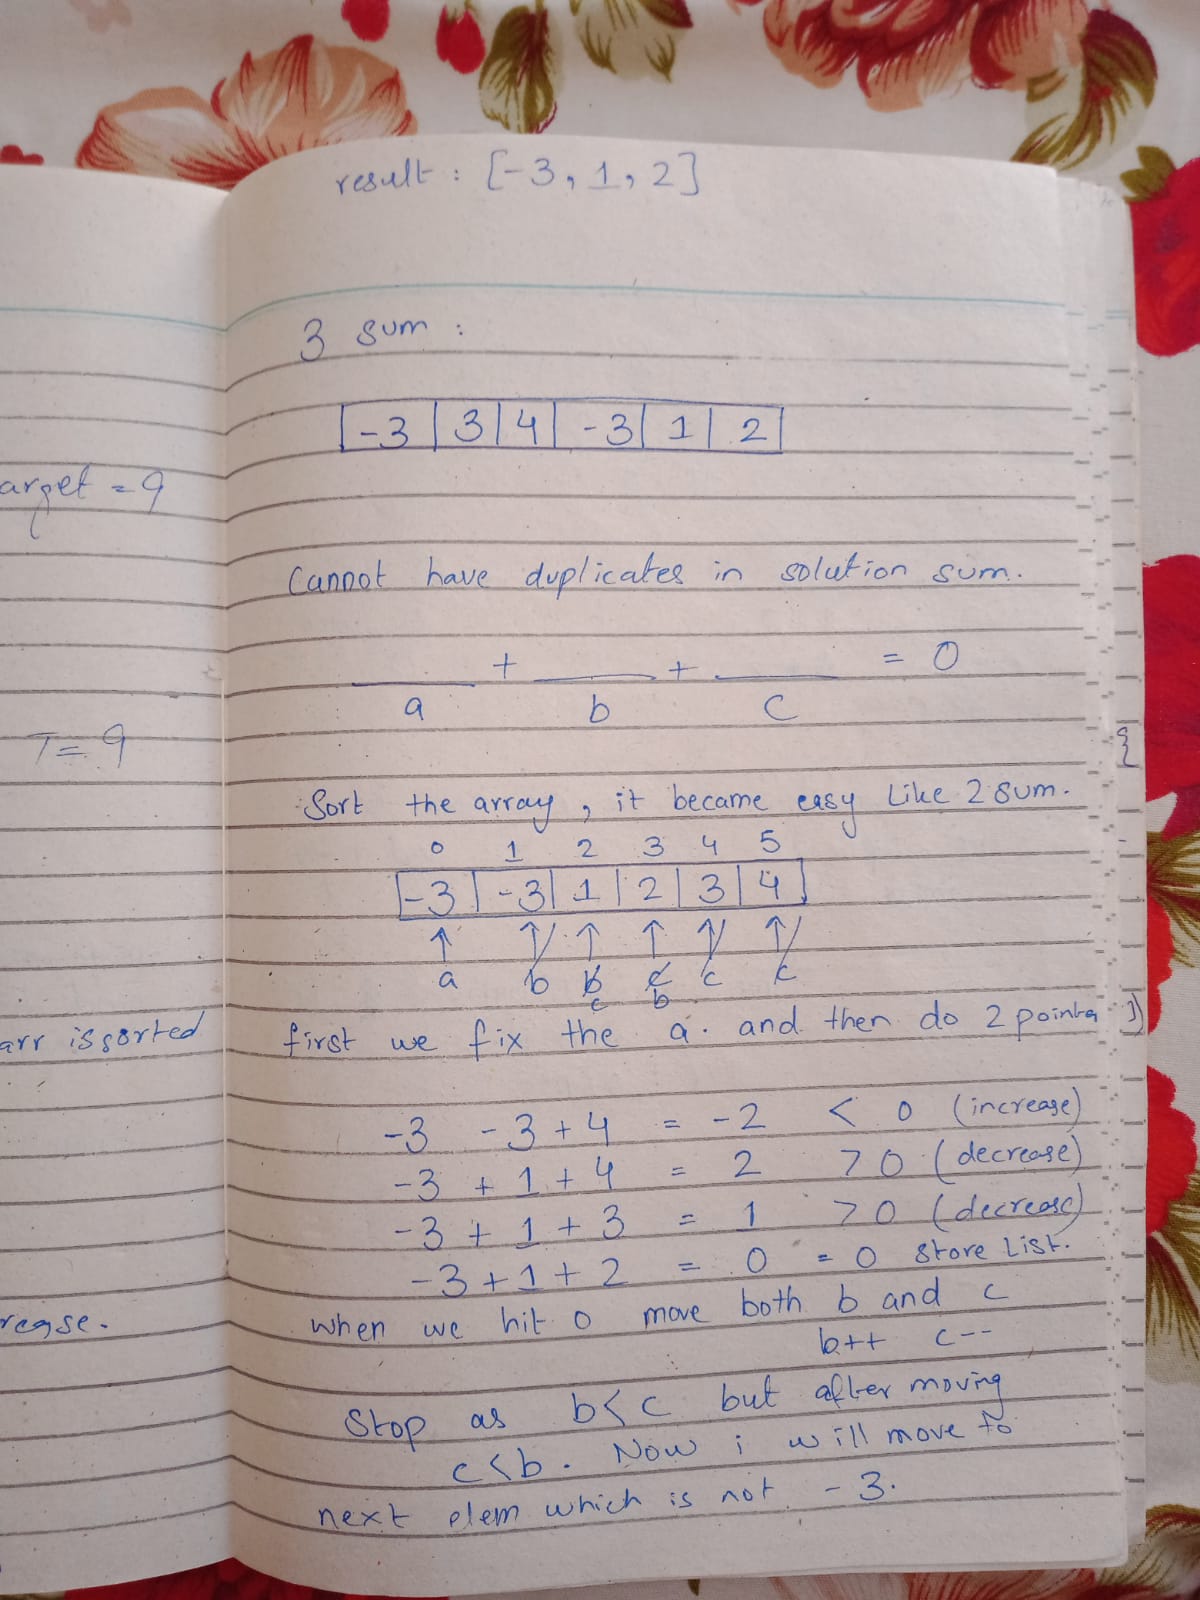 arget = 9
T = 9
arr is sorted
rease.
result : [-3, 1, 2]
3 sum :
-3 3 4 -3 1 2
Cannot have duplicates in solution sum.
___ + ___ + ___ = 0
a b c
Sort the array, it became easy Like 2 sum.
0 1 2 3 4 5
-3 -3 1 2 3 4
a b b c c c
c b
first we fix the a. and then do 2 pointer
-3 -3 + 4 = -2 < 0 (increase)
-3 + 1 + 4 = 2 > 0 (decrease)
-3 + 1 + 3 = 1 > 0 (decrease)
-3 + 1 + 2 = 0 = 0 store List.
when we hit 0 move both b and c
b++ c--
Stop as b<c but after moving
c<b. Now i will move to
next elem which is not -3.